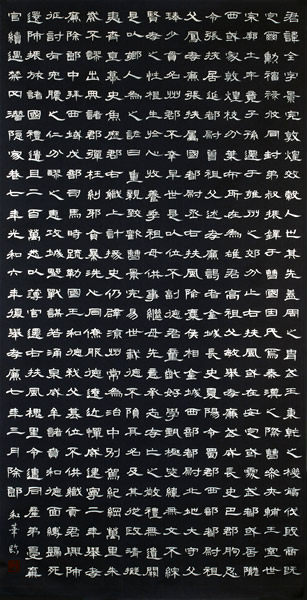 君諱全字景完敦煌效穀人也其先蓋周之胄武王秉乾之機翦伐殷商既
定爾勳福祿攸同封弟叔振鐸于曹國因氏焉秦漢之際曹參夾輔王
室世宗廓土斥竟子孫遷于雍州之郊分止右扶風或在安定或處武都或居隴
西或家敦煌枝分葉布所在為雄君高祖父敏舉孝廉武威長史巴郡朐忍
令張掖居延都尉曾祖父述孝廉謁者金城長史夏陽令蜀郡西部都尉祖
父鳳孝廉張掖屬國都尉丞右扶風隃麋侯相金城西部都尉北地太守父
琫少貫名州郡不幸早世是以位不副德君童齔好學甄極毖緯無文不綜
賢孝之性根生於心收養季祖母供事繼母先意承志存亡之敬禮無遺闕
是以鄉人為之諺曰重親致歡曹景完易世載德不隕其名及其從政清擬
夷齊直慕史魚歷郡右職上計掾史仍辟涼州常為治中別駕紀綱萬里朱
紫不謬出典諸郡彈枉糾邪貪暴洗心同僚服德遠近憚威建寧二年舉孝
廉除郎中拜西域戊部司馬時疏勒國王和德弒父篡位不供職貢君興師
征討有兗膿之仁分醪之惠攻城野戰謀若涌泉威牟諸賁和德面縛歸死
還師振旅諸國禮遺且二百萬悉以簿官遷右扶風槐里令遭同產弟憂棄
官續遇禁冈潛隱家巷七年光和六年復舉孝廉七年三月除郎